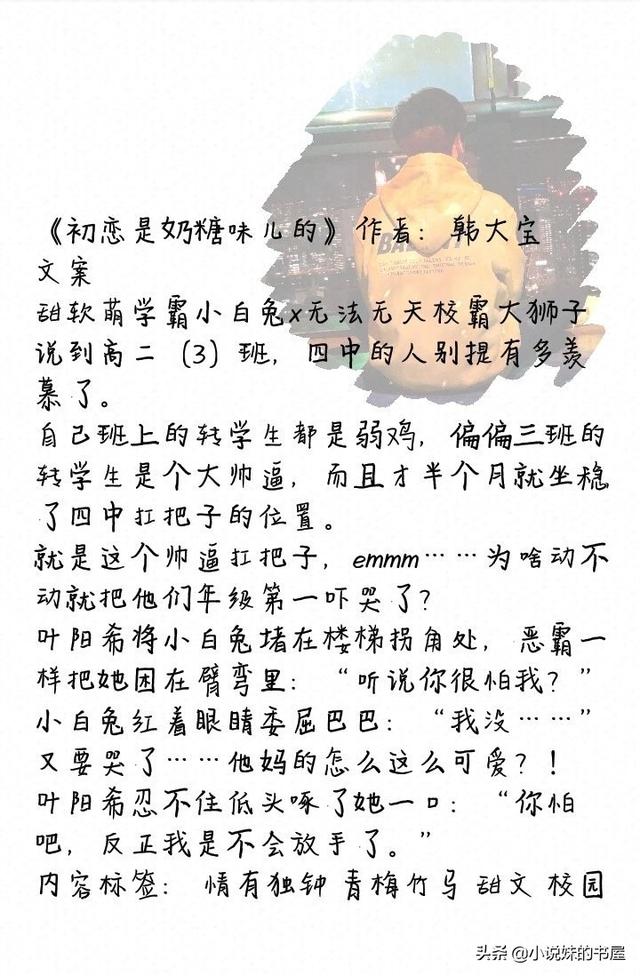 《初恋是奶糖味儿的》作者：韩大宝
文案
甜软萌学霸小白兔x无法无天校霸大狮子
说到高二（3）班，四中的人别提有多羡
慕了。
自己班上的转学生都是弱鸡，偏偏三班的
转学生是个大帅逼，而且才半个月就坐稳
了四中扛把子的位置。
就是这个帅逼扛把子，emmm……为啥动不
动就把他们年级第一吓哭了？
叶阳希将小白兔堵在楼梯拐角处，恶霸一
样把她困在臂弯里：“听说你很怕我？”
小白兔红着眼睛委屈巴巴：“我没……”
又要哭了……他妈的怎么这么可爱？！
叶阳希忍不住低头啄了她一口：“你怕
吧，反正我是不会放手了。”
内容标签：情有独钟 青梅竹马 甜文 校园
头条@小说妹的书屋